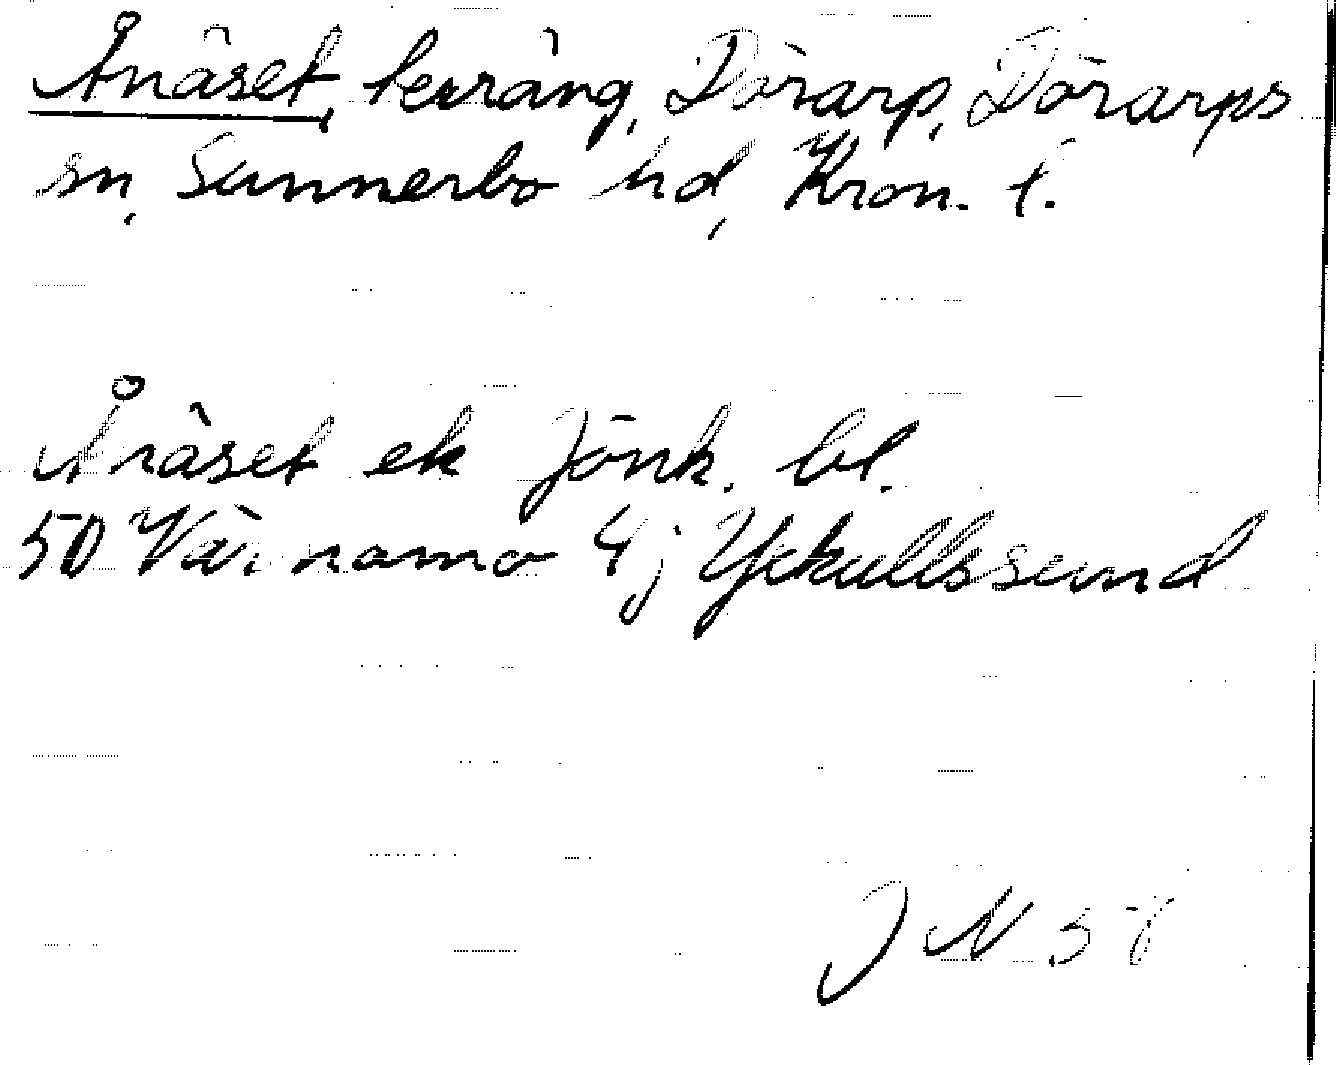 Ånäset, terräng, Dörarp, Dörarps
sn, Sunnerbo hd, Kron. l.
Ånäset ek Jönk. bl.
50 Värnamo 4j Yxkullssund
J N 57